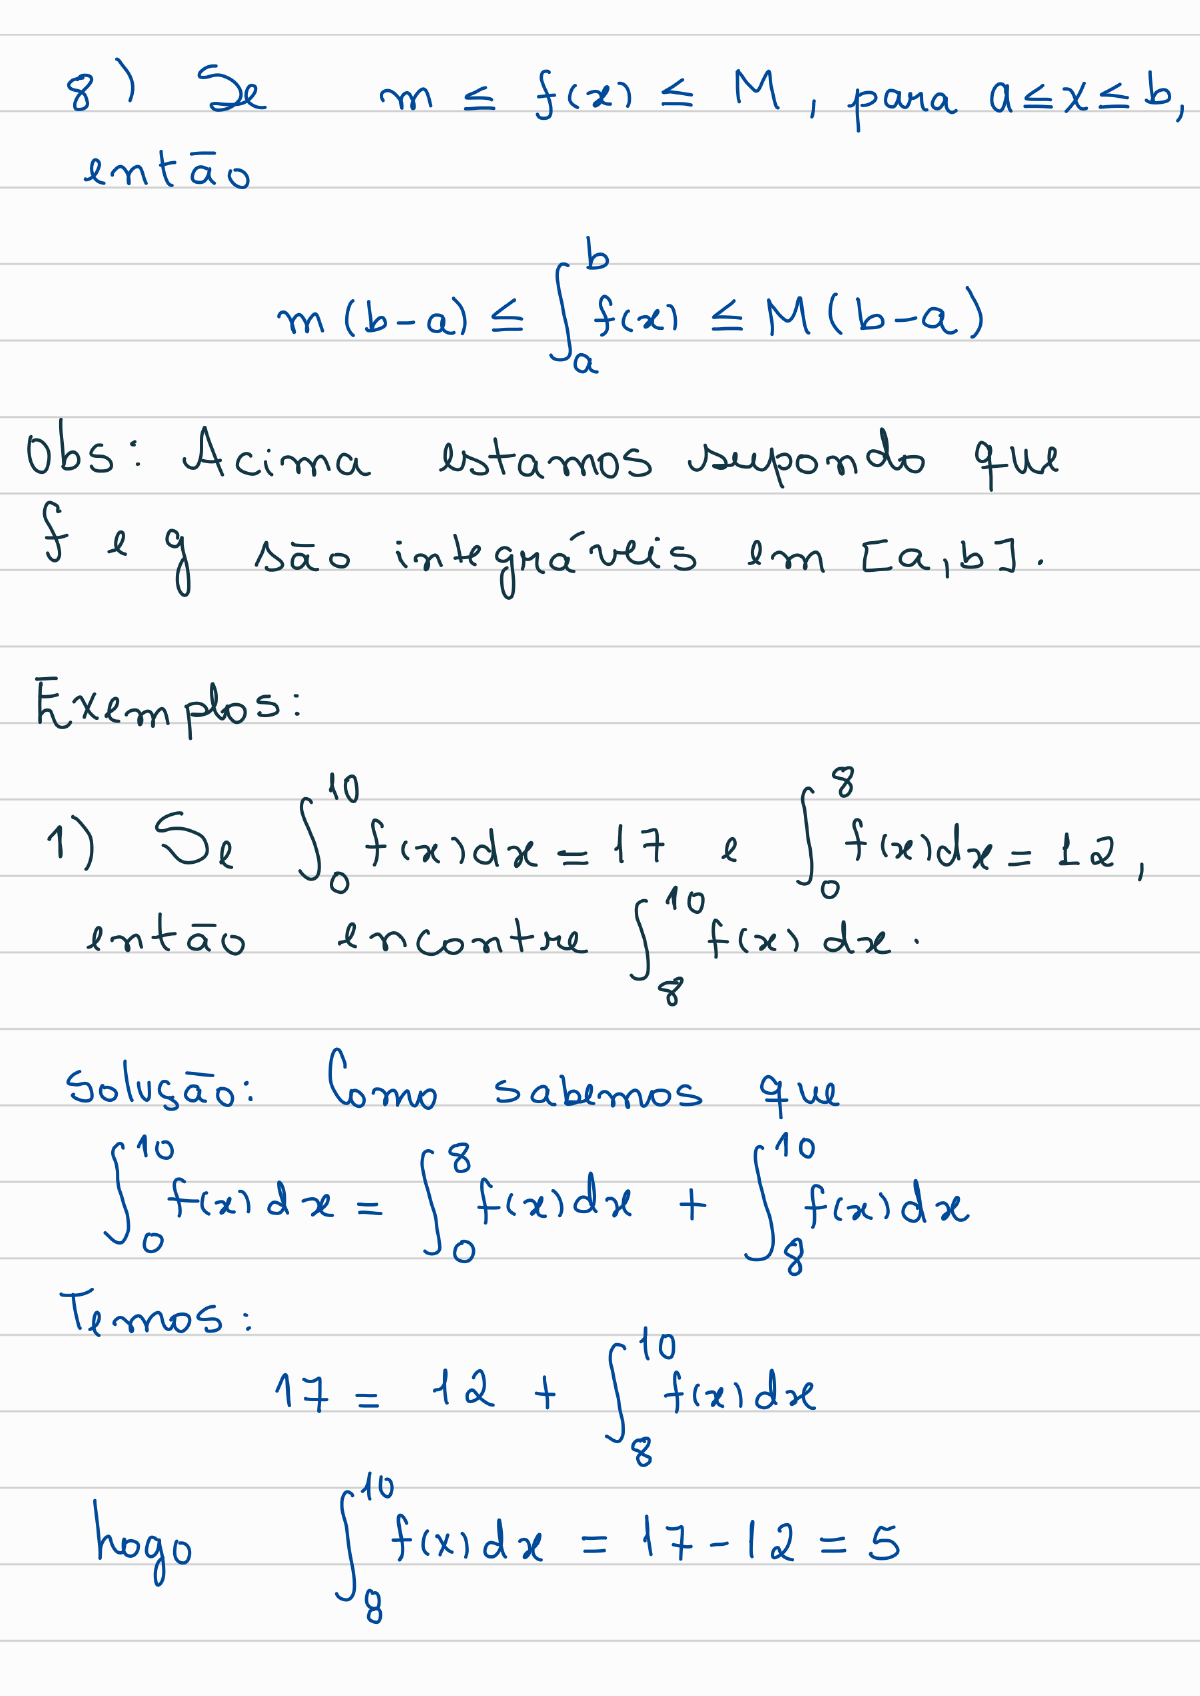 8) Se m ≤ f(x) ≤ M, para a≤x≤b,
então
m(b-a) ≤ ∫_a^b f(x) ≤ M(b-a)
Obs: Acima estamos supondo que
f e g são integráveis em [a,b].
Exemplos:
1) Se ∫_0^10 f(x)dx = 17 e ∫_0^8 f(x)dx = 12,
então encontre ∫_8^10 f(x) dx.
Solução: Como sabemos que
∫_0^10 f(x) dx = ∫_0^8 f(x)dx + ∫_8^10 f(x)dx
Temos:
17 = 12 + ∫_8^10 f(x)dx
Logo ∫_8^10 f(x)dx = 17-12 = 5